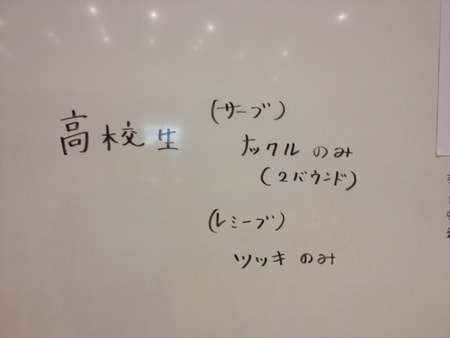 高校生
(サーブ)
ナックルのみ
(2バウンド)
(レシーブ)
ツッキのみ